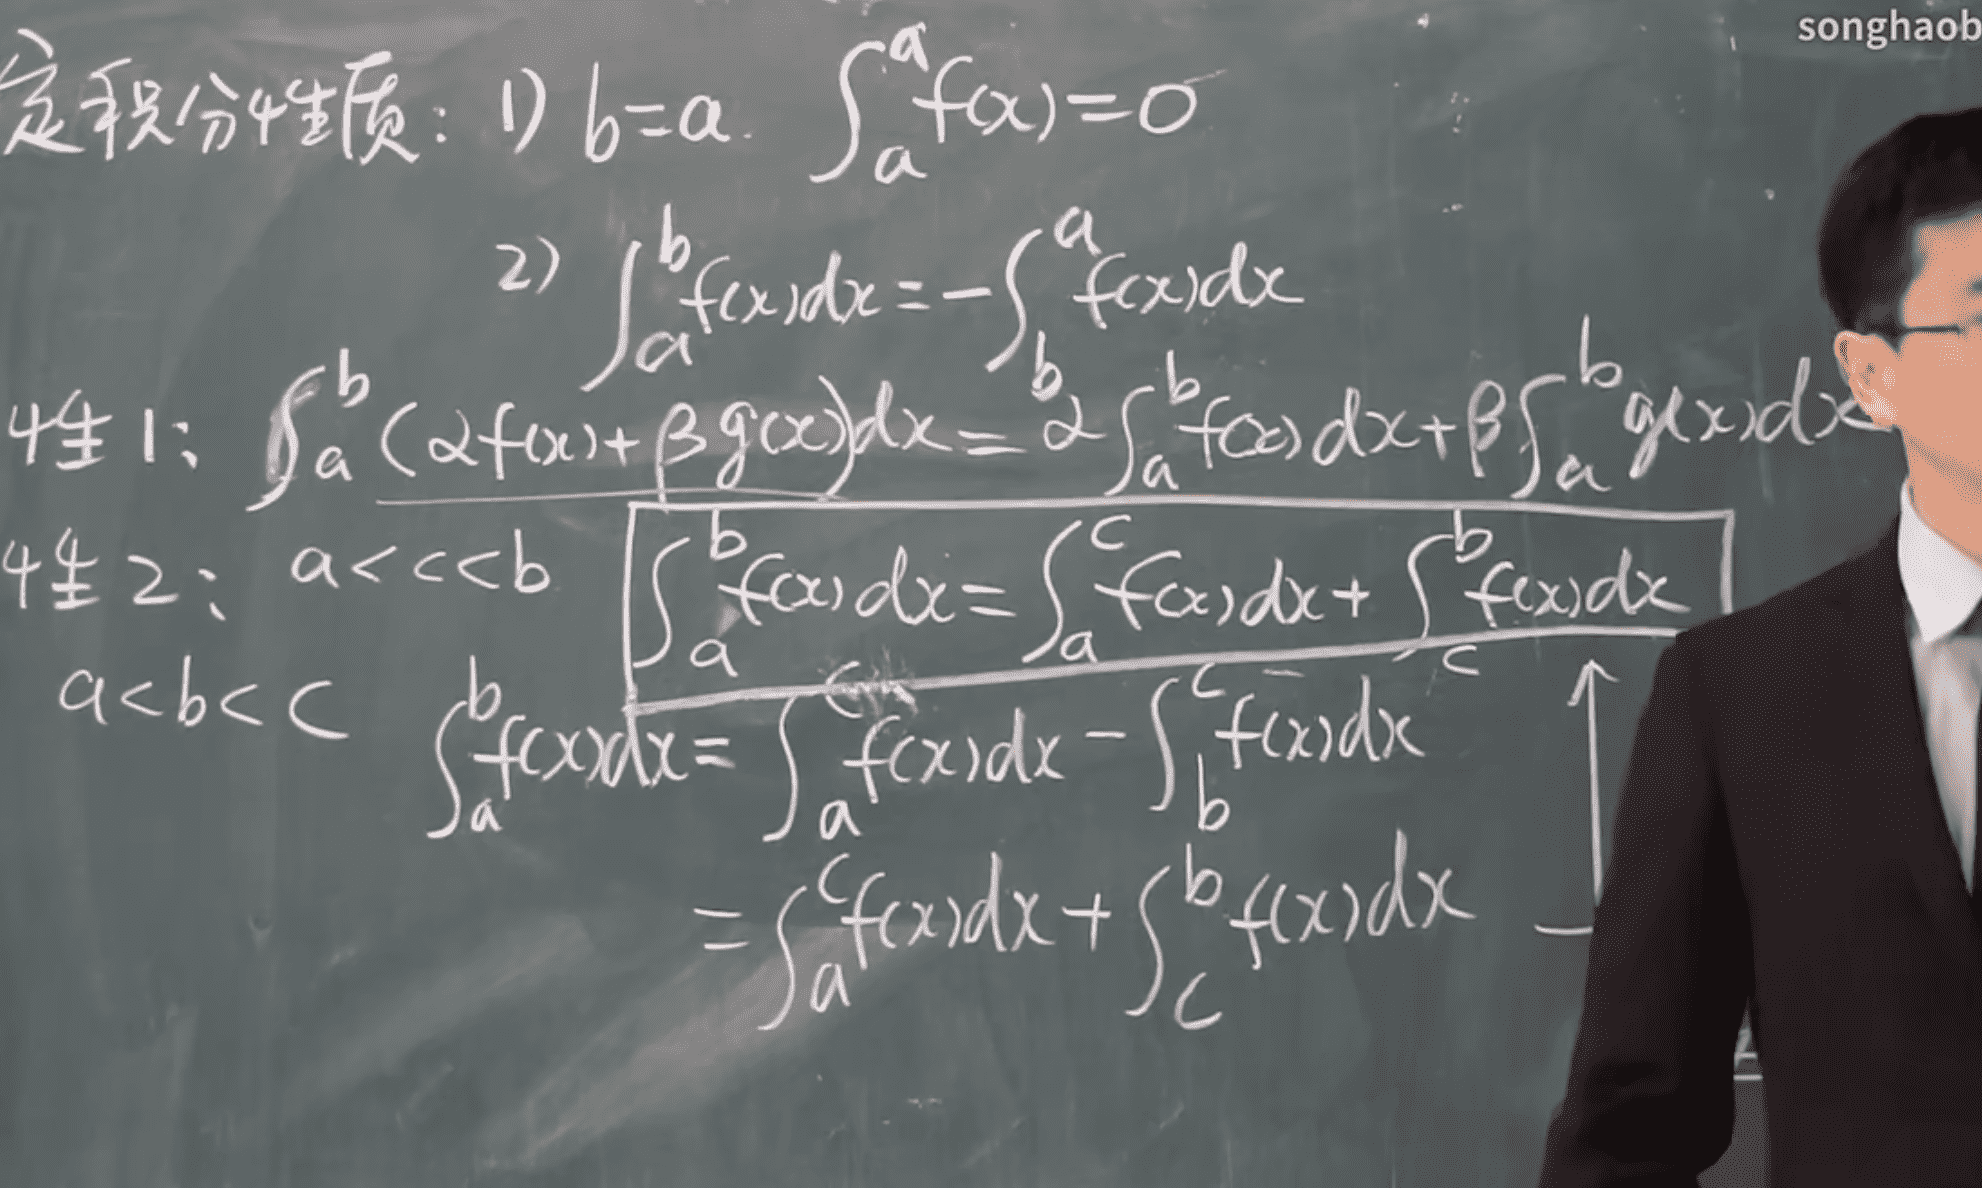 songhaob
定积分性质: 1) b=a. ∫_a^a f(x)=0
2) ∫_a^b f(x)dx=-∫_b^a f(x)dx
性1: ∫_a^b (αf(x)+βg(x))dx=α∫_a^b f(x)dx+β∫_a^b g(x)dx
性2: a<c<b ∫_a^b f(x)dx=∫_a^c f(x)dx+∫_c^b f(x)dx
a<b<c ∫_a^b f(x)dx=∫_a^c f(x)dx-∫_b^c f(x)dx
=∫_a^c f(x)dx+∫_c^b f(x)dx